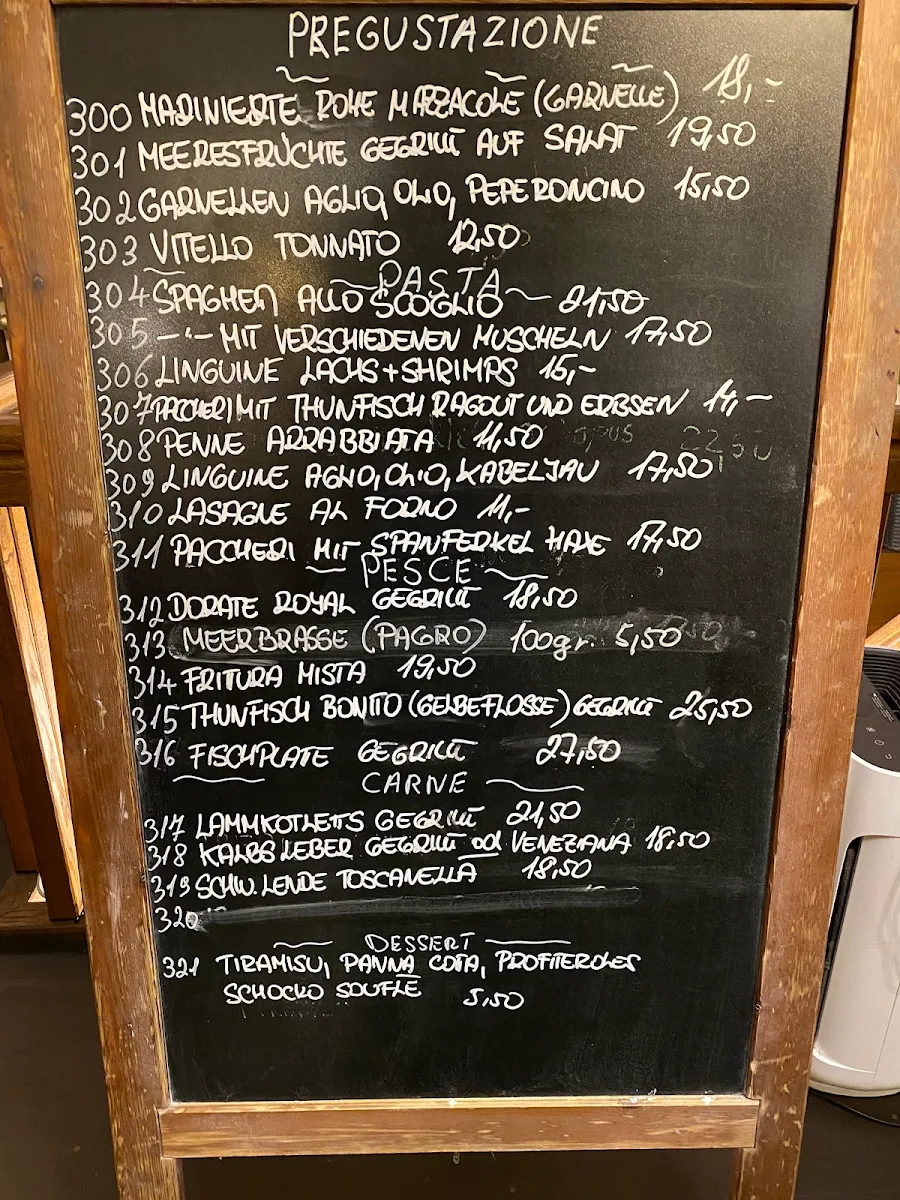 PREGUSTAZIONE
300 MARINIERTE ROHE MAZZACOLE (GARNELLE) 18,-
301 MEERESFRÜCHTE GEGRILLT AUF SALAT 19,50
302 GARNELLEN AGLIO, OLIO, PEPERONCINO 15,50
303 VITELLO TONNATO 12,50
PASTA
304 SPAGHETTI ALLO SCOGLIO 21,50
305 -"- MIT VERSCHIEDENEN MUSCHELN 17,50
306 LINGUINE LACHS+SHRIMPS 15,-
307 PACCHERI MIT THUNFISCH RAGOUT UND ERBSEN 14,-
308 PENNE ARRABBIATA 11,50
309 LINGUINE AGLIO, OLIO, KABELJAU 17,50
310 LASAGNE AL FORNO 11,-
311 PACCHERI MIT SPANFERKEL HAXE 17,50
PESCE
312 DORATE ROYAL GEGRILLT 18,50
313 MEERBRASSE (PAGRO) 100gr. 5,50
314 FRITURA MISTA 19,50
315 THUNFISCH BONITO (GELBEFLOSSE) GEGRILLT 25,50
316 FISCHPLATE GEGRILLT 27,50
CARNE
317 LAMMKOTLETTS GEGRILLT 21,50
318 KALBSLEBER GEGRILLT od VENEZIANA 18,50
319 SCHW. LENDE TOSCANELLA 18,50
320
DESSERT
321 TIRAMISU, PANNA COTA, PROFITEROLES
SCHOCKO SOUFLE 5,50